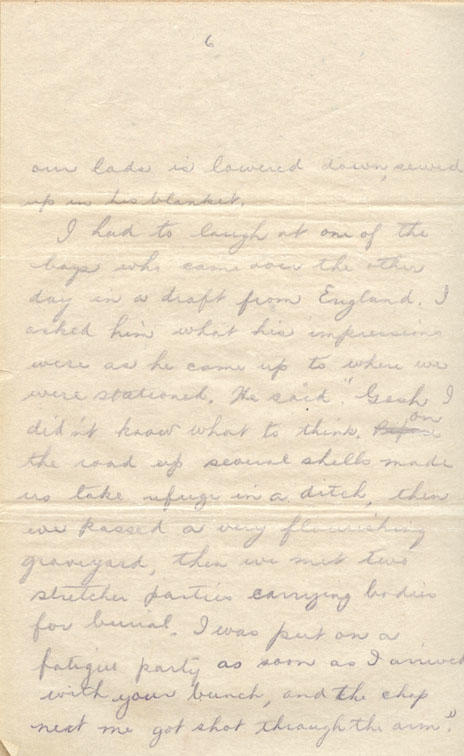 6
our lads is lowered down, sewed
up in his blanket.
I had to laugh at one of the
boys who came over the other
day in a draft from England. I
asked him what his impressions
were as he came up to where we
were stationed. He said "Gosh I
didn't know what to think. on
the road up several shells made
us take refuge in a ditch, then
we passed a very flourishing
graveyard, then we met two
stretcher parties carrying bodies
for burial. I was put on a
fatigue party as soon as I arrived
with your bunch, and the chap
next me got shot through the arm."